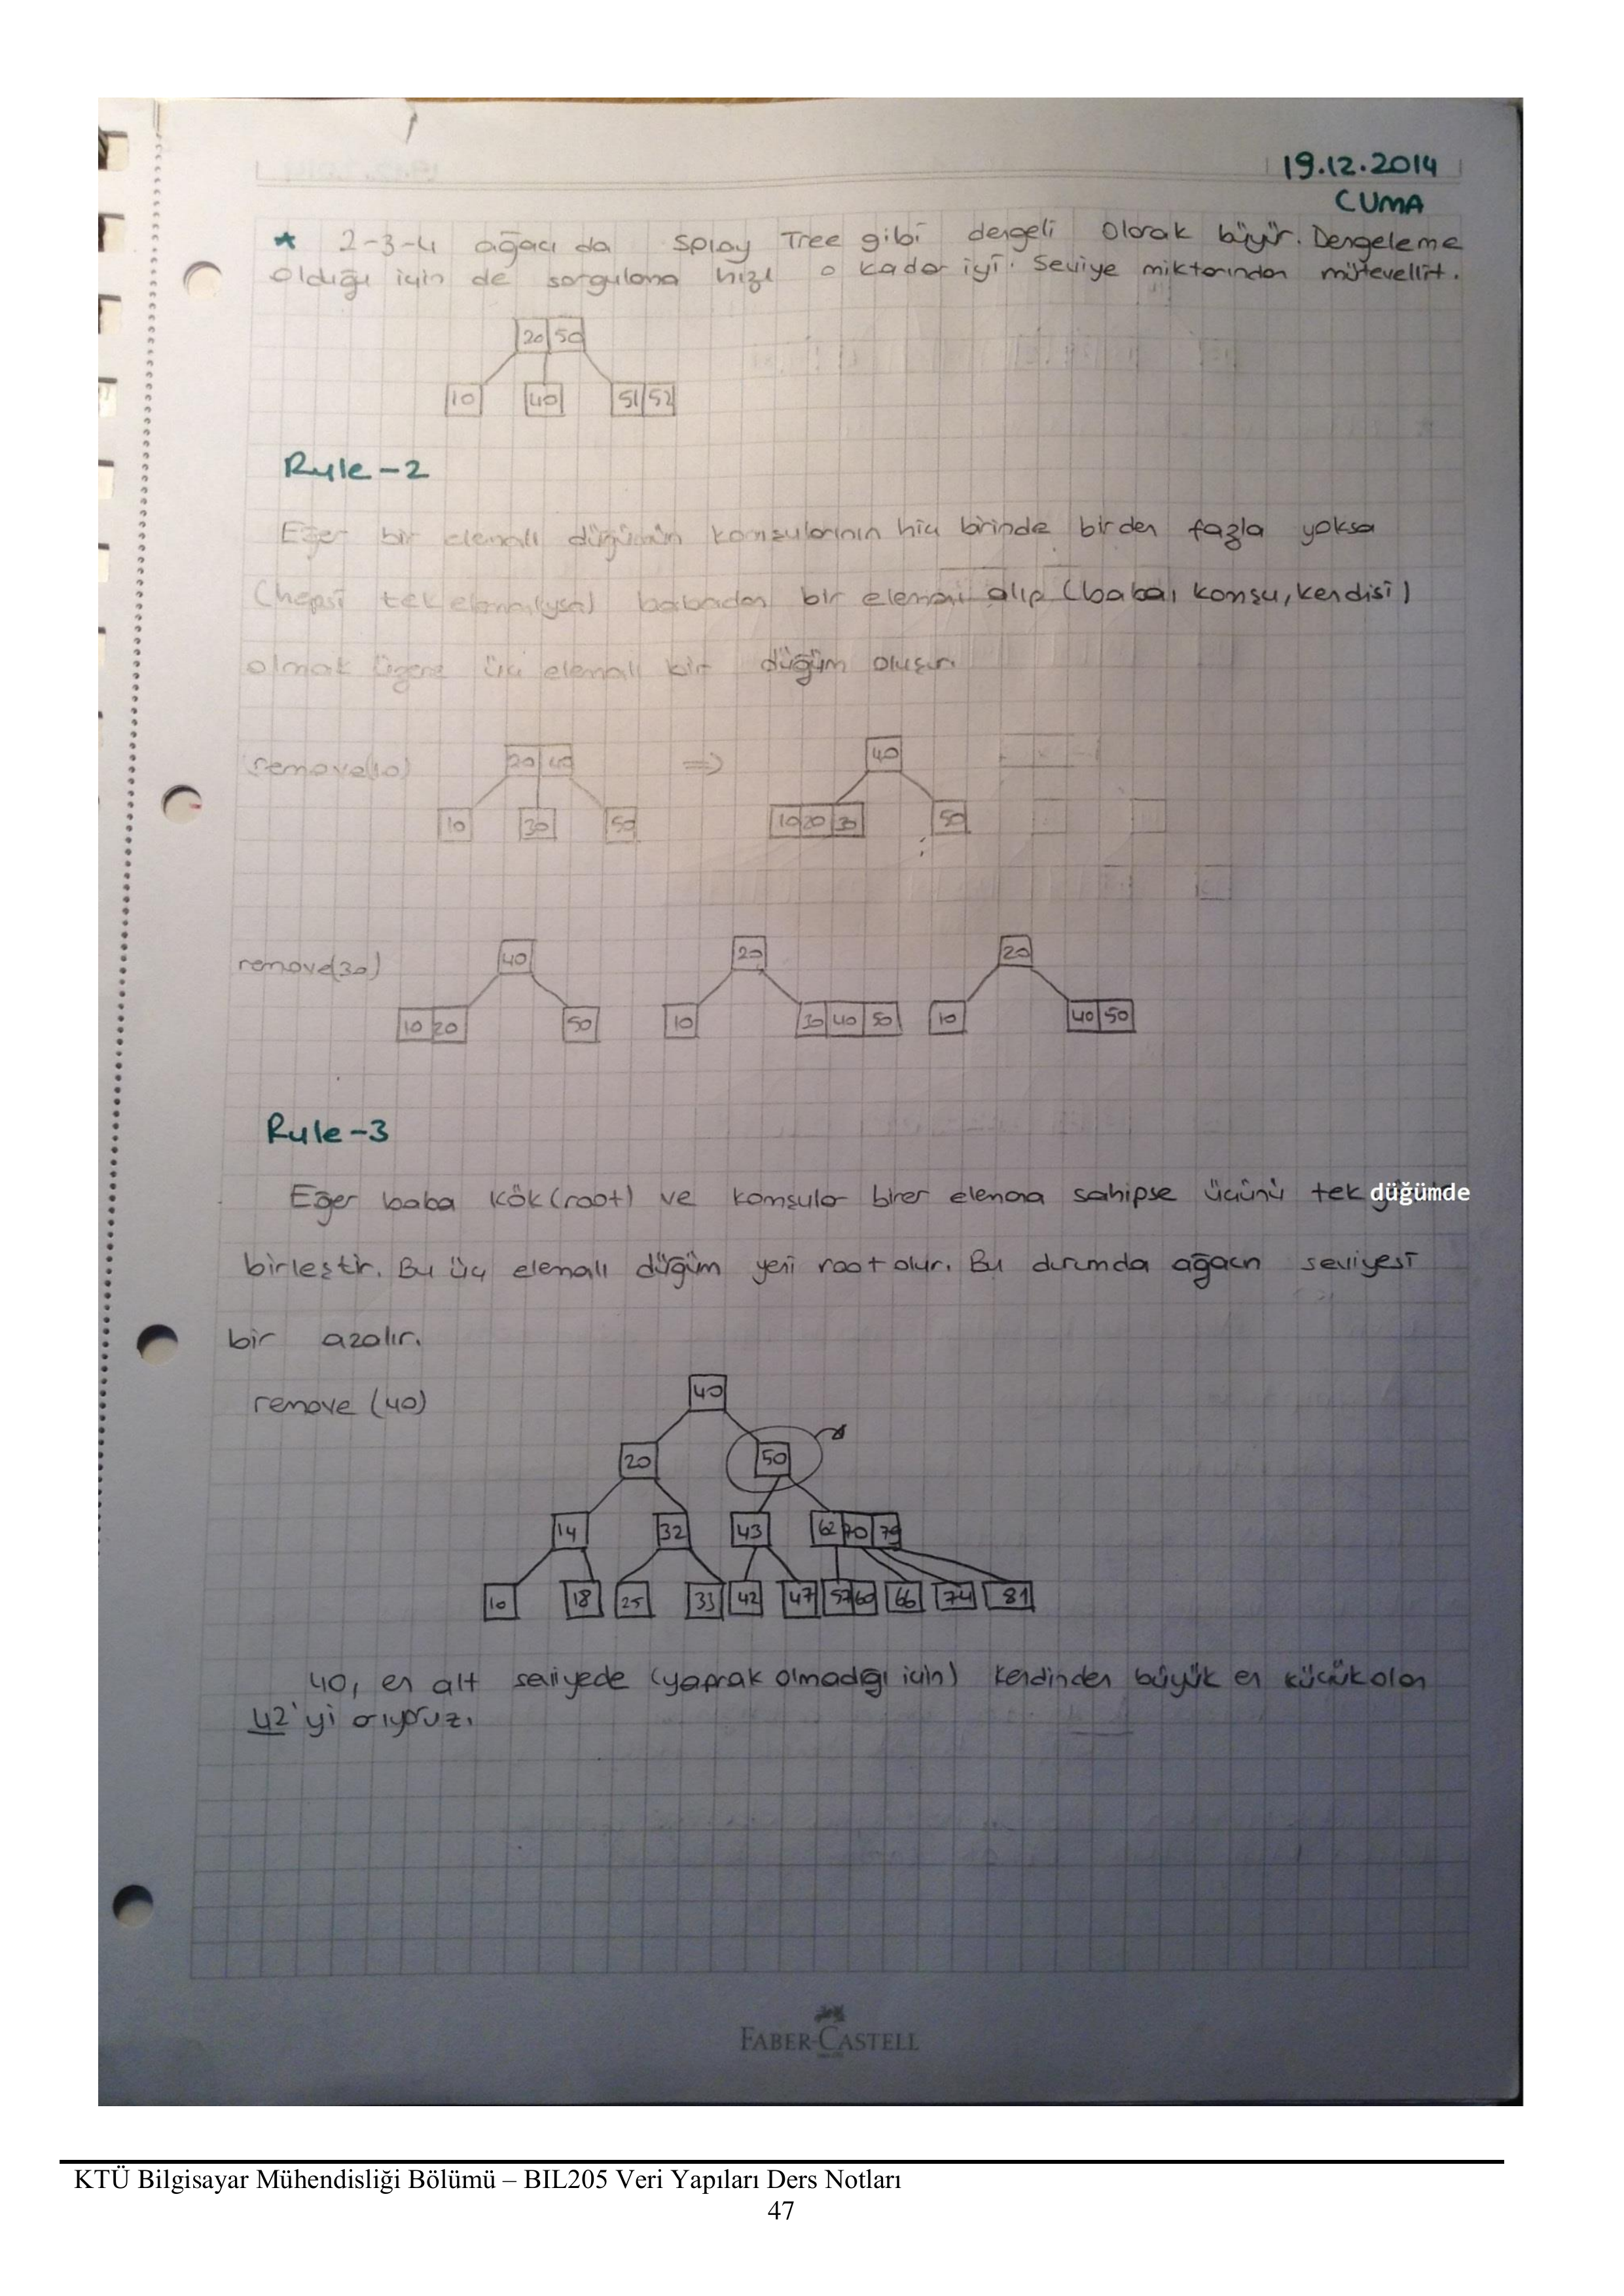 19.12.2014
CUMA
* 2-3-4 ağacı da Splay Tree gibi dengeli olarak büyür. Dengeleme
olduğu için de sorgulama hızı o kadar iyi. Seviye miktarından mütevellit.
20 50
10 40 51 52
Rule-2
Eğer bir elemalı düğümün komşularının hiç birinde birden fazla yoksa
(hepsi tek elemanlıysa) babadan bir elemanı alıp (baba, komşu, kendisi)
olmak üzere üç elemalı bir düğüm oluşur.
remove(10) 20 40 => 40
10 30 50 10 20 30 50
remove(30) 40 20 20
10 20 50 10 30 40 50 10 40 50
Rule-3
Eğer baba kök(root) ve komşular birer elemana sahipse üçünü tek düğümde
birleştir. Bu üç elemalı düğüm yeni root olur. Bu durumda ağacın seviyesi
bir azalır.
remove (40) 40
20 50
14 32 43 62 70 79
10 18 25 33 42 47 57 60 66 74 81
40, en alt seviyede (yaprak olmadığı için) kendinden büyük en küçük olan
42'yi arıyoruz.
FABER-CASTELL
KTÜ Bilgisayar Mühendisliği Bölümü – BIL205 Veri Yapıları Ders Notları
47